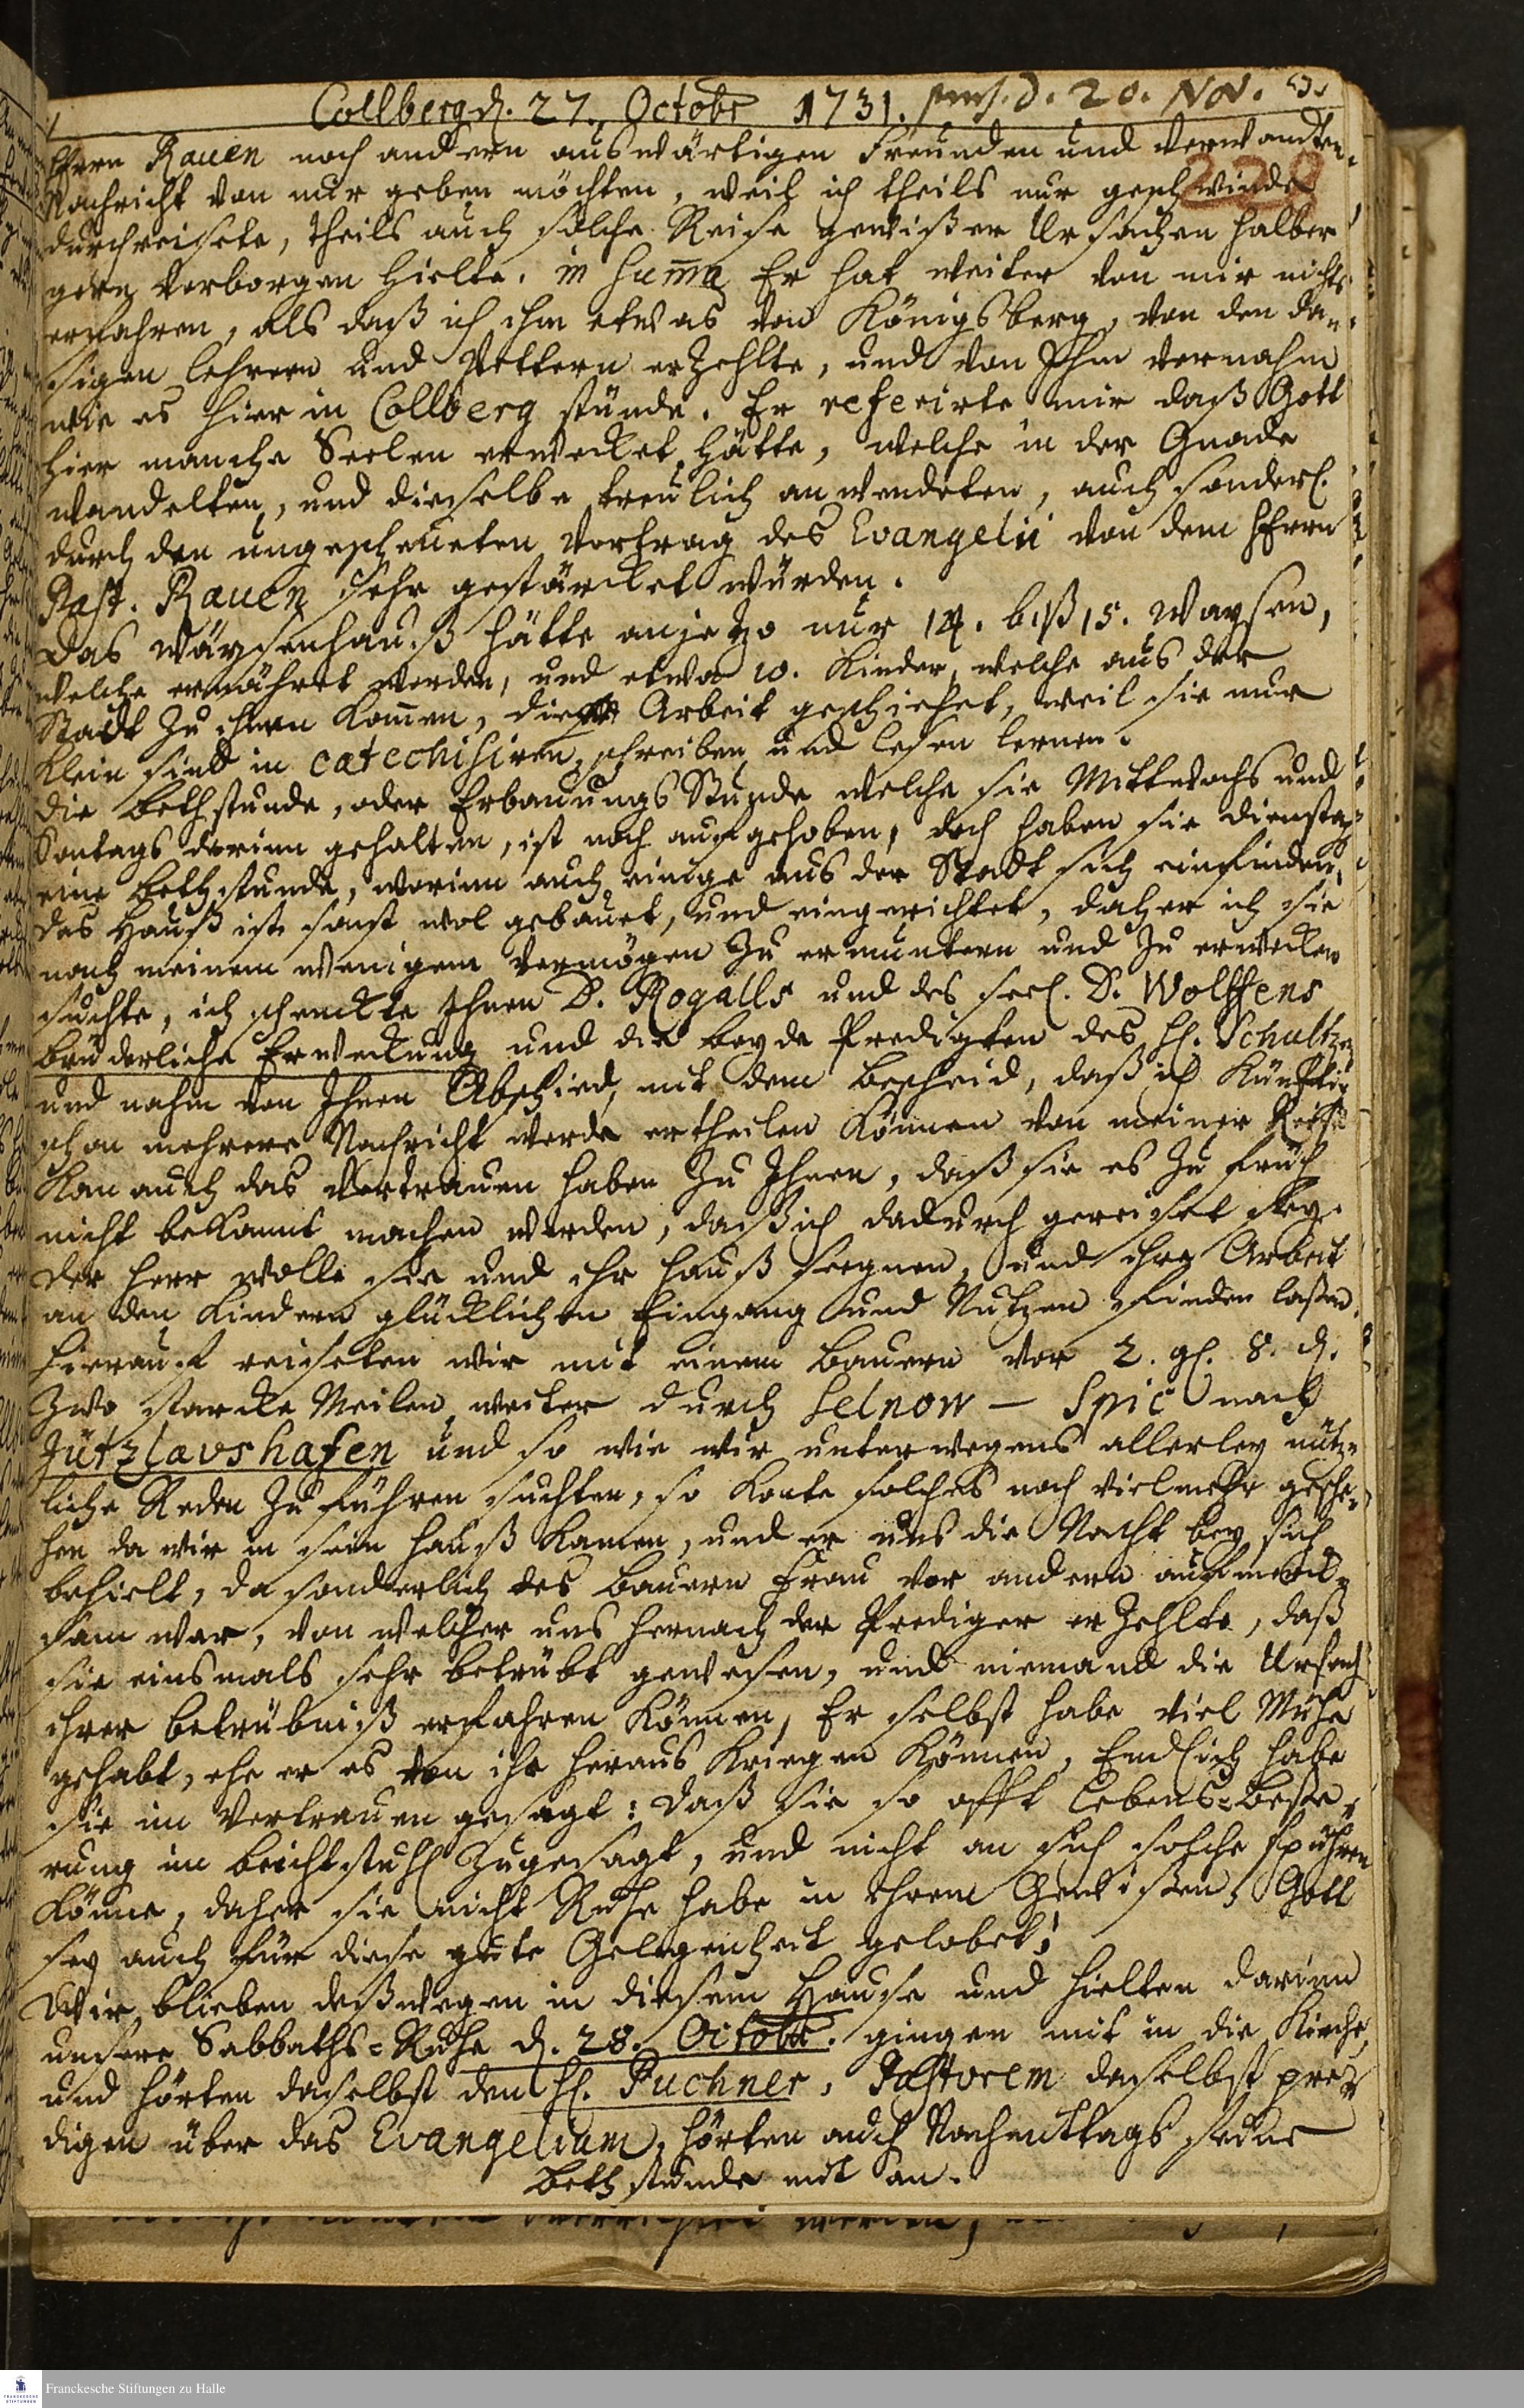 Collberg d. 27. Octobr 1731. præs. d. 20. Nov.
229
Herrn Rauen noch andern auswärtigen Freunden und Verwandten
Nachricht von mir geben möchten, weil ich theils nur geschwinde
durchreisete, theils auch solche Reise gewißer Ursachen halber
gern verborgen hielte. in sum̄a Er hat weiter von mir nichts
erfahren, als daß ich ihm etwas von Königsberg, von den da-
sigen Lehrern und Vettern erzehlte, und von Ihm vernahm
wie es hier in Collberg stünde. Er referirte mir daß Gott
hier manche Seelen erwecket hätte, welche in der Gnade
wandelten, und dieselbe treulich anwendeten, auch sonderl.
durch den ungescheueten Vortrag des Evangelii von dem Herrn
Past. Rauen sehr gestärcket würden.
Das Wäysenhauß hätte anjetzo nur 14. biß 15. Waysen,
welche ernähret werden, und etwa 10. Kinder, welche aus der
Stadt zu ihnen kom̄en, die Arbeit geschiehet, weil sie nur
klein sind in catechisiren, schreiben und lesen lernen.
Die Bethstunde, oder Erbauungs Stunde welche sie Mittwochs und
Sontags darinn gehalten, ist noch aufgehoben, doch haben sie dienstag
eine Bethstunde, worinn auch einige aus der Stadt sich einfinden,
das Hauß ist sonst wol gebauet, und eingerichtet, daher ich sie
nach meinem wenigem Vermögen zu ermuntern und zu erwecken
suchte, ich schenckte Ihnen D. Rogalls und des seel. D. Wolffens
brüderliche Erweckung und die beyde Predigten des H. Schultzen
und nahm von Ihnen Abschied, mit dem Bescheid, daß ich künftig
schon mehrere Nachricht werde ertheilen können von meiner Reise
kan auch das Vertrauen haben zu Ihnen, daß sie es zu früh
nicht bekannt machen werden, daß ich dadurch gereiset sey.
Der Herr wolle sie und ihr Hauß seegnen, und ihre Arbeit
an den Kindern glücklichen Eingang und Nutzen finden laßen.
Hierauf reiseten wir mit einem Bauern vor 2. gl. 8. d.
Zwo starcke Meilen, weiter durch Selnow – Spie nach
Jützlavshafen und so wie wir unterwegens allerley nütz-
liche Reden zu führen suchten, so konte solches noch vielmehr gesche-
hen da wir in sein Hauß kamen, und er uns die Nacht bey sich
behielt, da sonderlich des Bauern Frau vor andern aufmerck-
sam war, von welcher uns hernach der Prediger erzehlte, daß
sie einsmals sehr betrübt gewesen, und niemand die Ursach
ihrer Betrübniß erfahren können, Er selbst habe viel Mühe
gehabt, ehe er es von ihr heraus kriegen können, Endlich habe
sie im Vertrauen gesagt: daß sie so offt Lebens-Beße-
rung im Beichtstuhl zugesagt, und nicht an sich solche spühren
könne, daher sie nicht Ruhe habe in ihrem Gewißen, Gott
sey auch für diese gute Gelegenheit gelobet!
Wir blieben deßwegen in diesem Hause und hielten darinn
unsere Sabbaths-Ruhe d. 28. Octobr. gingen mit in die Kirche,
und hörten daselbst den H. Puchner, Pastorem daselbst pre-
digen über das Evangelium, hörten auch Nachmittags seine
Bethstunde mit an.
Franckesche Stiftungen zu Halle